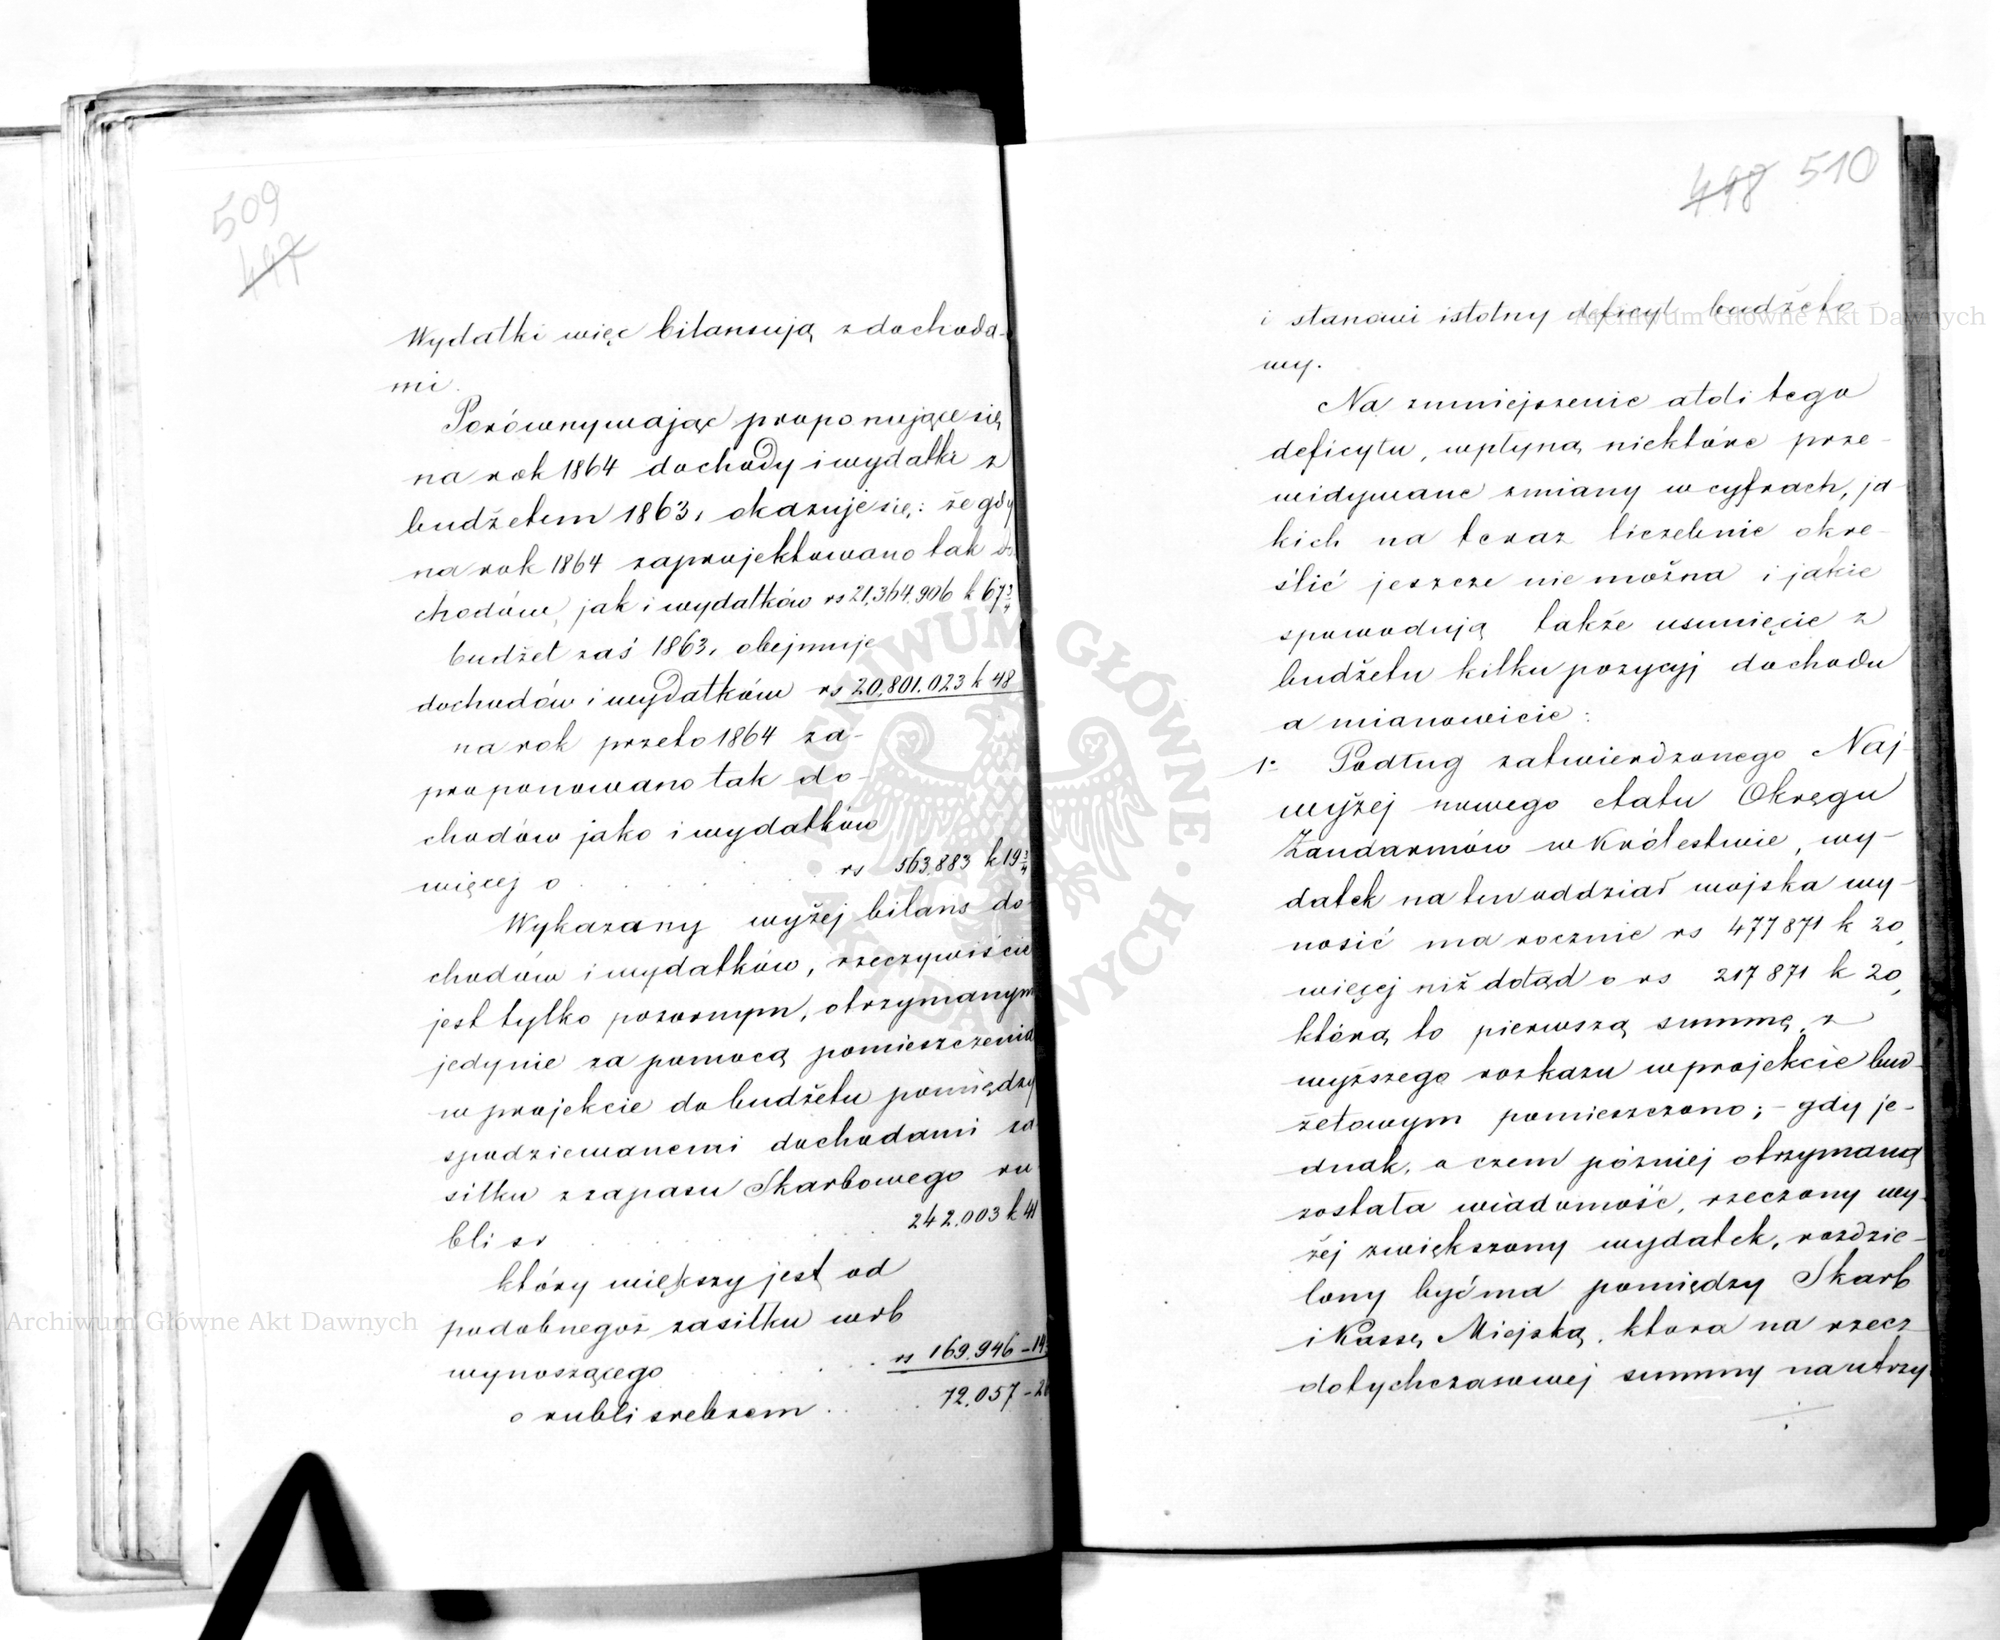 509
497
Wydatki więc bilansują z dochoda-
mi.
Porównywając proponujące się
na rok 1864 dochody i wydatki z
budżetem 1863, okazuje się: że gdy
na rok 1864 zaprojektowano tak do
chodów, jak i wydatków rs 21,364,906 k 67¾
budżet zaś 1863, obejmuje
dochodów i wydatków rs 20,801,023 k 48
na rok przeto 1864 za-
proponowano tak do-
chodów jako i wydatków
więcej o . . . . . rs 563,883 k 19¾
Wykazany wyżej bilans do-
chodów i wydatków, rzeczywiście
jest tylko pozornym, otrzymanym
jedynie za pomocą pomieszczenia
w projekcie do budżetu pomiędzy
spodziewanemi dochodami za
siłku z zapasu Skarbowego ru-
bli sr . . . . . 242.003 k 41
który większy jest od
podobnegoż zasiłku w rb
wynoszącego . . . rs 169.946 – 14
o rubli srebrem . . . 72.057 – 26
498 510
i stanowi istotny deficyt budżeto-
wy.
Na zmniejszenie atoli tego
deficytu, wpłyną niektóre prze-
widywane zmiany w cyfrach, ja-
kich na teraz liczebnie okre-
ślić jeszcze nie można i jakie
spowodują także usunięcie z
budżetu kilku pozycyj dochodu
a mianowicie:
1º Podług zatwierdzonego Naj-
wyżej nowego etatu Okręgu
Żandarmów w Królestwie, wy-
datek na ten oddział wojska wy-
nosić ma rocznie rs 477871 k 20,
więcej niż dotąd o rs 217871 k 20,
którą to pierwszą summę, z
wyższego rozkazu w projekcie bud-
żetowym pomieszczono; – gdy je-
dnak, o czem później otrzymaną
została wiadomość, rzeczony wy-
żej zwiększony wydatek, rozdzie-
lony być ma pomiędzy Skarb
i Kassę Miejską, która na rzecz
dotychczasowej summy na utrzy-
Archiwum Główne Akt Dawnych
Archiwum Główne Akt Dawnych
ARCHIWUM GŁÓWNE AKT DAWNYCH